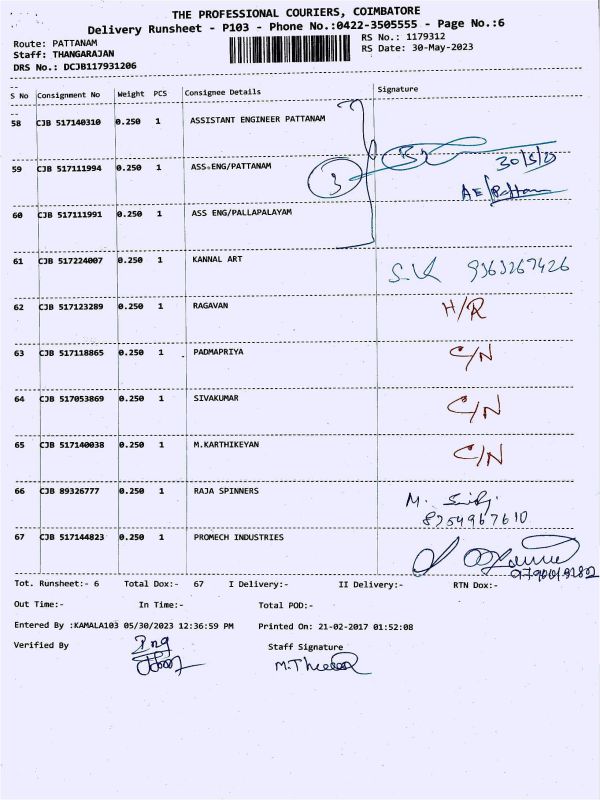 THE PROFESSIONAL COURIERS, COIMBATORE
Delivery Runsheet - P103 - Phone No.:0422-3505555 - Page No.:6
Route: PATTANAM
RS No.: 1179312
Staff: THANGARAJAN
RS Date: 30-May-2023
DRS No.: DCJB117931206
S No Consignment No Weight PCS Consignee Details Signature
58 CJB 517140310 0.250 1 ASSISTANT ENGINEER PATTANAM
59 CJB 517111994 0.250 1 ASS.ENG/PATTANAM 3 30/5/23
AE/
60 CJB 517111991 0.250 1 ASS ENG/PALLAPALAYAM
61 CJB 517224007 0.250 1 KANNAL ART S.K 9363267426
62 CJB 517123289 0.250 1 RAGAVAN H/R
63 CJB 517118865 0.250 1 PADMAPRIYA C/N
64 CJB 517053869 0.250 1 SIVAKUMAR C/N
65 CJB 517140038 0.250 1 M.KARTHIKEYAN C/N
66 CJB 89326777 0.250 1 RAJA SPINNERS M.
8254967610
67 CJB 517144823 0.250 1 PROMECH INDUSTRIES
Tot. Runsheet:- 6 Total Dox:- 67 I Delivery:- II Delivery:- RTN Dox:-
Out Time:- In Time:- Total POD:-
Entered By :KAMALA103 05/30/2023 12:36:59 PM Printed On: 21-02-2017 01:52:08
Verified By Staff Signature